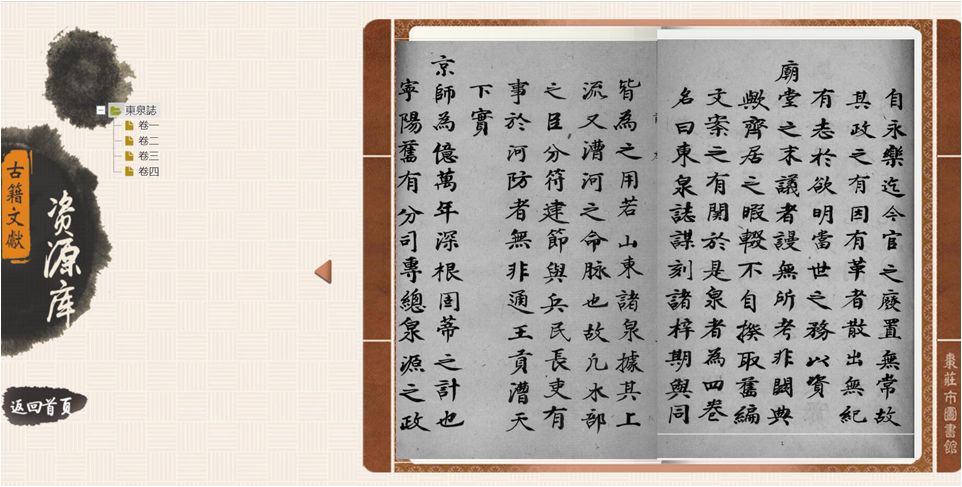 東泉誌
卷一
卷二
卷三
卷四
古籍文獻
资源库
返回首頁
自永樂迄今官之廢置無常故
其政之有因有革者散出無紀
有志於欲明當世之務以資
廟堂之末議者謾無所考非闕典
歟齊居之暇輟不自揆取舊編
文案之有関於是泉者為四卷
名曰東泉誌謀刻諸梓期與同
皆為之用若山東諸泉據其上
流又漕河之命脉也故凢水部
之臣分符建節與兵民長吏有
事於河防者無非通王貢漕天
下實
京師為億萬年深根固蒂之計也
寧陽舊有分司專總泉源之政
棗莊市圖書館